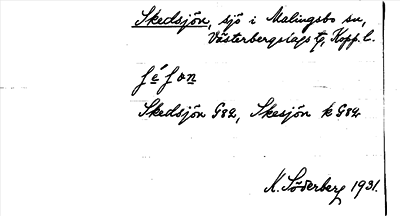 Skedsjön, sjö i Malingsbo sn,
Västerbergslags tg, Kopp. l.
ʃéʃön
Skedsjön G82, Skesjön k G82
K. Söderberg 1931.